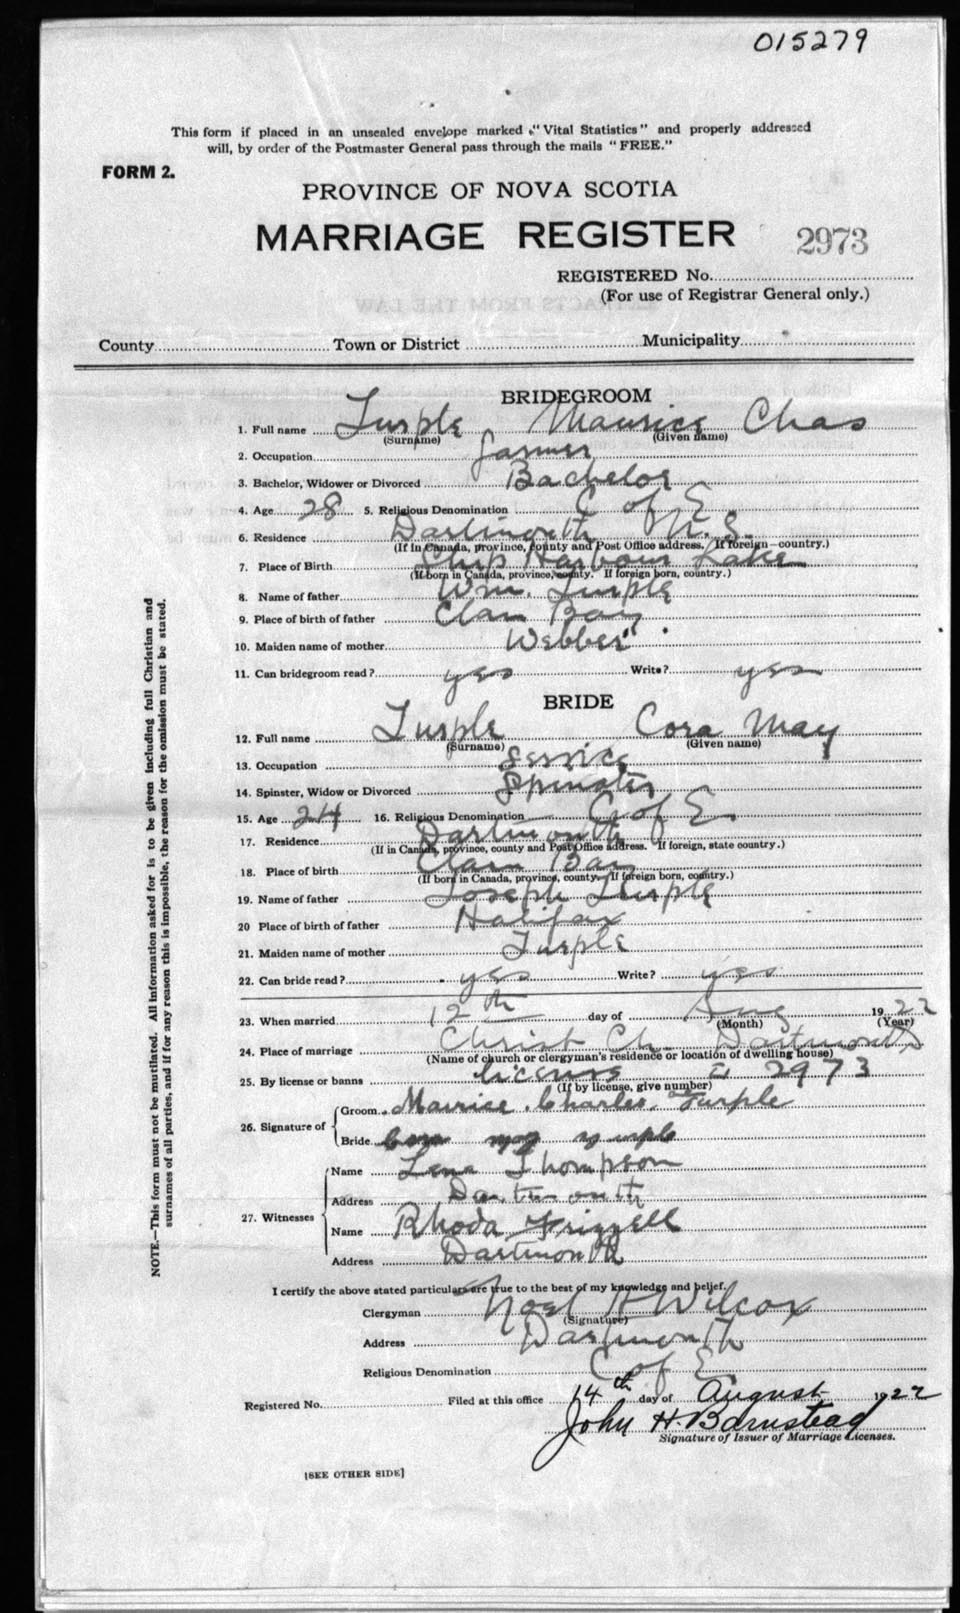 015279
This form if placed in an unsealed envelope marked "Vital Statistics" and properly addressed
will, by order of the Postmaster General pass through the mails "FREE."
FORM 2.
PROVINCE OF NOVA SCOTIA
MARRIAGE REGISTER 2973
REGISTERED No.
(For use of Registrar General only.)
County Town or District Municipality
BRIDEGROOM
1. Full name Turple Maurice Chas
(Surname) (Given name)
2. Occupation farmer
3. Bachelor, Widower or Divorced Bachelor
4. Age 28 5. Religious Denomination C of E
6. Residence Dartmouth N.S.
(If in Canada, province, county and Post Office address. If foreign—country.)
7. Place of Birth Ship Harbour Lake
(If born in Canada, province, county. If foreign born, country.)
8. Name of father Wm. Turple
9. Place of birth of father Clam Bay
10. Maiden name of mother Webber
11. Can bridegroom read? yes Write? yes
BRIDE
12. Full name Turple Cora May
(Surname) (Given name)
13. Occupation service
14. Spinster, Widow or Divorced Spinster
15. Age 24 16. Religious Denomination C of E.
17. Residence Dartmouth
(If in Canada, province, county and Post Office address. If foreign, state country.)
18. Place of birth Clam Bay
(If born in Canada, province, county. If foreign born, country.)
19. Name of father Joseph Turple
20 Place of birth of father Halifax
21. Maiden name of mother Turple
22. Can bride read? yes Write? yes
23. When married 12th day of Aug 1922
(Month) (Year)
24. Place of marriage Christ Ch. Dartmouth
(Name of church or clergyman's residence or location of dwelling house)
25. By license or banns license 2973
(If by license, give number)
26. Signature of Groom Maurice Charles Turple
Bride Cora may turple
27. Witnesses Name Lena Thompson
Address Dartmouth
Name Rhoda Frizzell
Address Dartmouth
I certify the above stated particulars are true to the best of my knowledge and belief.
Clergyman Noel H Wilcox
(Signature)
Address Dartmouth
Religious Denomination C of E
Registered No. Filed at this office 14th day of August 1922
John H. Barnstead
Signature of Issuer of Marriage Licenses.
[SEE OTHER SIDE]
NOTE.—This form must not be mutilated. All information asked for is to be given including full Christian and
surnames of all parties, and if for any reason this is impossible, the reason for the omission must be stated.